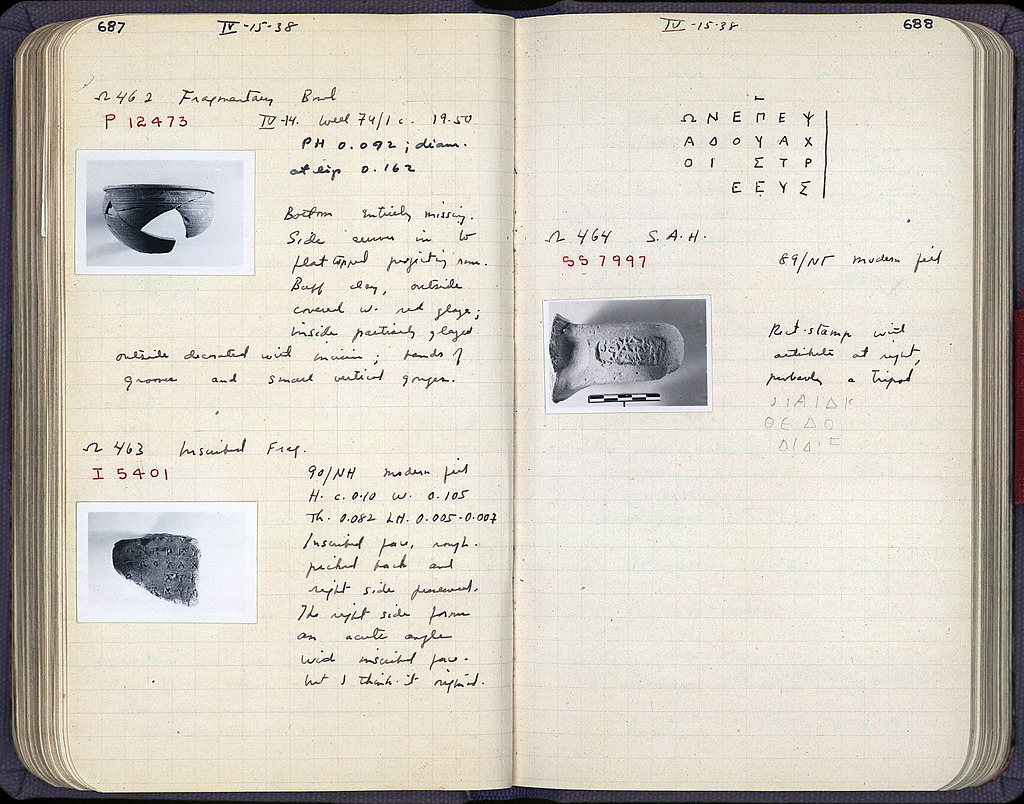 687
IV-15-38
Ω 462 Fragmentary Bowl
P 12473
IV-14. Well 74/1 c. 19.50
PH 0.092; diam.
at lip 0.162
Bottom entirely missing.
Side curves in to
flat topped projecting rim.
Buff clay, outside
covered w. red glaze;
inside partially glazed
outside decorated with incision; bands of
grooves and small vertical gouges.
Ω 463 Inscribed Frag.
I 5401
90/ΝΗ modern fill
H. c. 0.10 W. 0.105
Th. 0.082 LH. 0.005-0.007
Inscribed face, rough-
picked back and
right side preserved.
The right side forms
an acute angle
with inscribed face.
but I think it original.
IV-15-38
688
Ω Ν Ε Π Ε Ψ
Α Δ Ο Υ Α Χ
Ο Ι Σ Τ Ρ
Ε Ε Υ Σ
Ω 464 S.A.H.
SS 7997
89/ΝΓ modern fill
Rect. stamp with
attribute at right,
probably a tripod
ΙΑΙΔΚ
ΘΕΔΟ